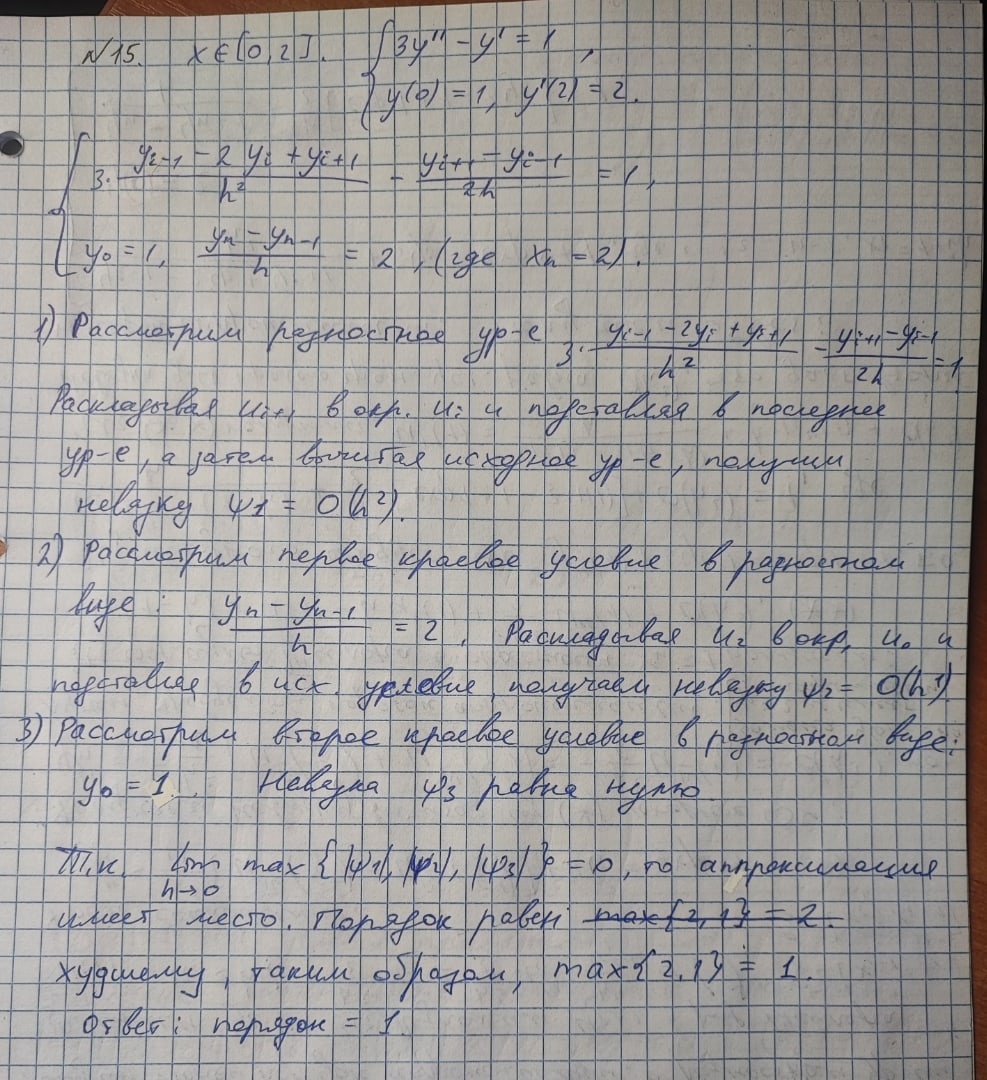 №15. x∈[0,2]. { 3y'' - y' = 1 ,
y(0) = 1, y'(2) = 2.
{ 3· (y_{i-1} - 2y_i + y_{i+1})/h² - (y_{i+1} - y_{i-1})/2h = 1,
y_0 = 1, (y_n - y_{n-1})/h = 2 , (где x_n = 2).
1) Рассмотрим разностное ур-е 3· (y_{i-1} - 2y_i + y_{i+1})/h² - (y_{i+1} - y_{i-1})/2h = 1
Раскладывая u_{i+1} в окр. u_i и подставляя в последнее
ур-е, а затем вычитая исходное ур-е, получим
невязку ψ1 = O(h²).
2) Рассмотрим первое краевое условие в разностном
виде: (y_n - y_{n-1})/h = 2 . Раскладывая u_2 в окр. u_0 и
подставляя в исх. условие, получаем невязку ψ_2 = O(h^1)
3) Рассмотрим второе краевое условие в разностном виде:
y_0 = 1. Невязка ψ_3 равна нулю.
Т.к. lim_{h→0} max{|ψ1|, |ψ2|, |ψ3|} = 0, то аппроксимация
имеет место. Порядок равен ~~max{2,1} = 2.~~
худшему, таким образом, max{2,1} = 1.
Ответ: порядок = 1.